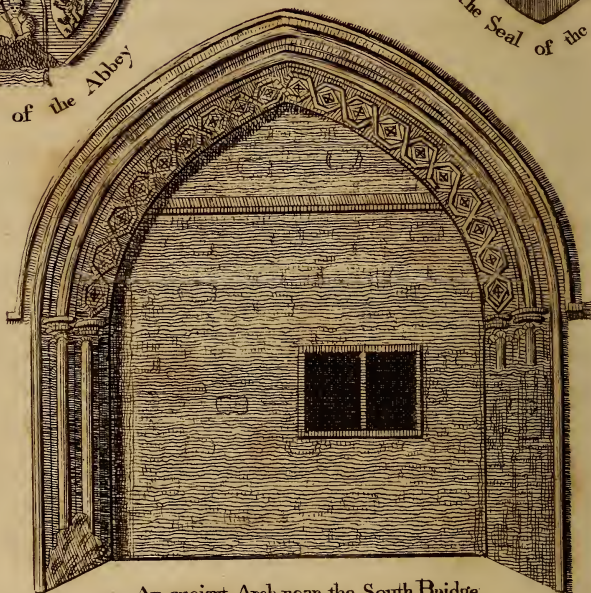 of the Abbey
The Seal of the
An ancient Arch near the South Bridge